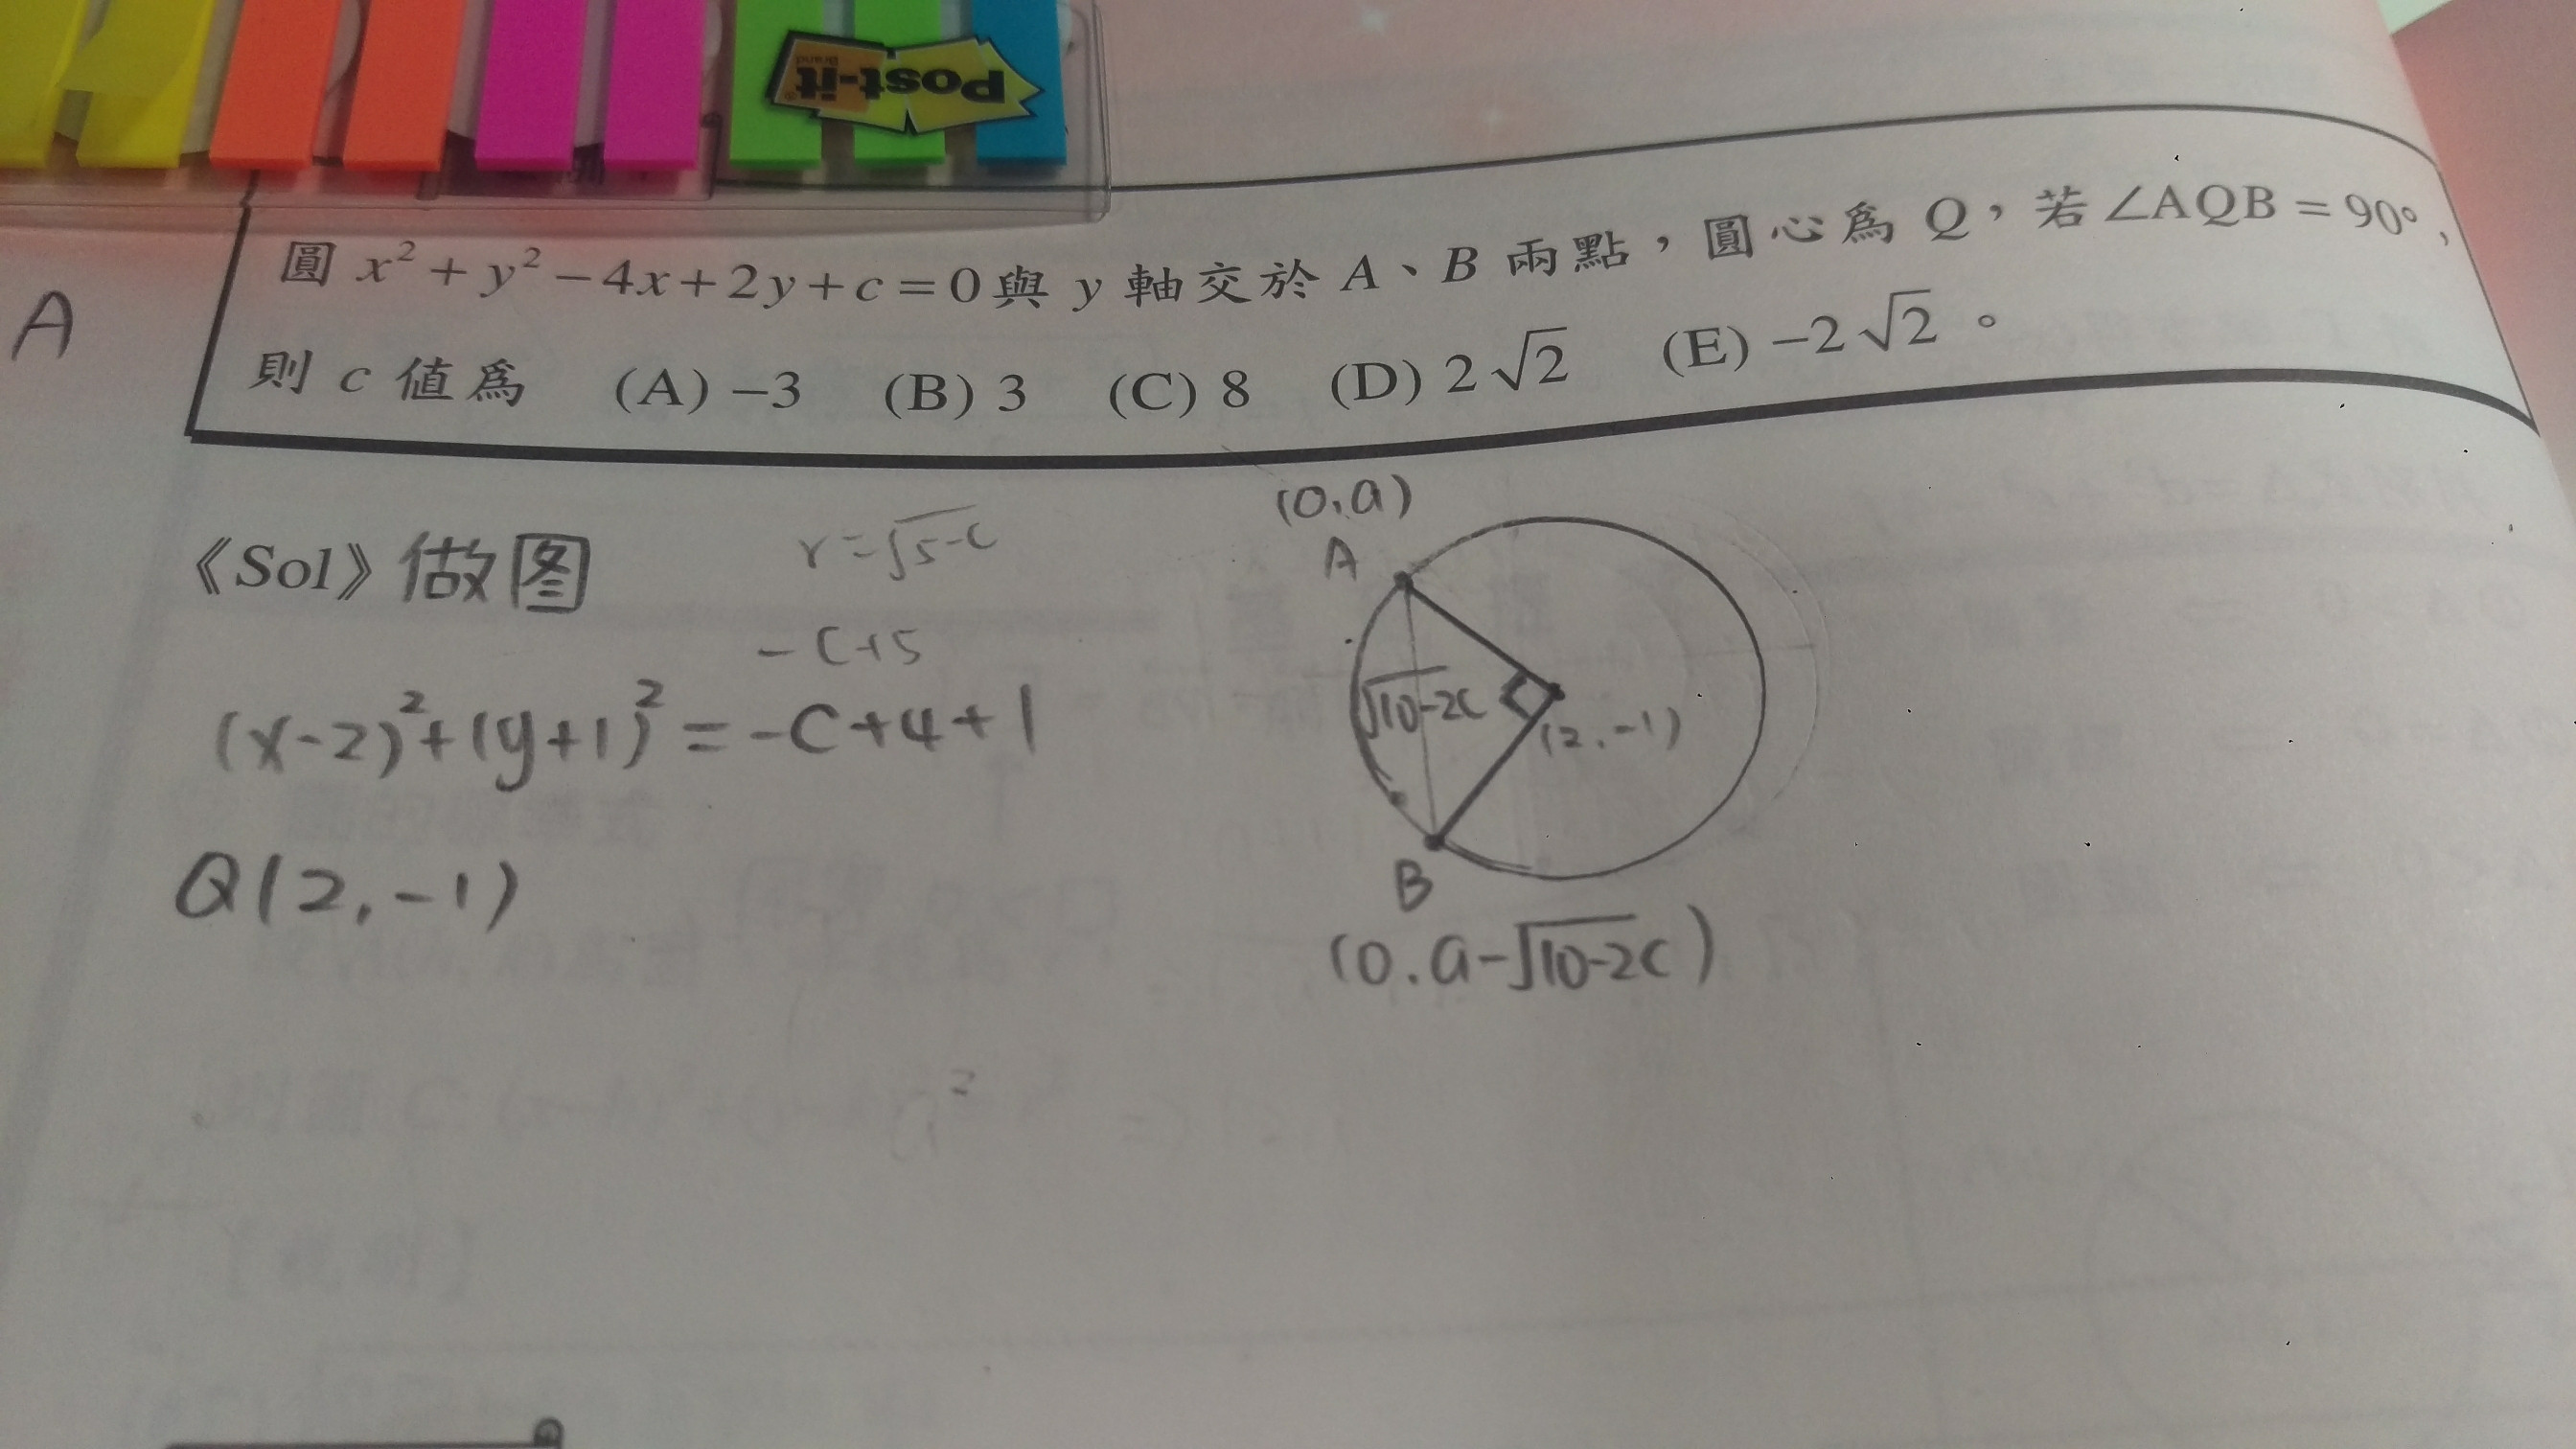 Post-it
Brand
圓 x² + y² − 4x + 2y + c = 0 與 y 軸交於 A、B 兩點，圓心為 Q，若 ∠AQB = 90°，
A
則 c 值為 (A) −3 (B) 3 (C) 8 (D) 2√2 (E) −2√2 。
《Sol》做图
r = √5-c
-c+5
(x-2)²+(y+1)² = -c+4+1
Q(2,-1)
(0,a)
A
√10-2c
(2,-1)
B
(0,a-√10-2c)